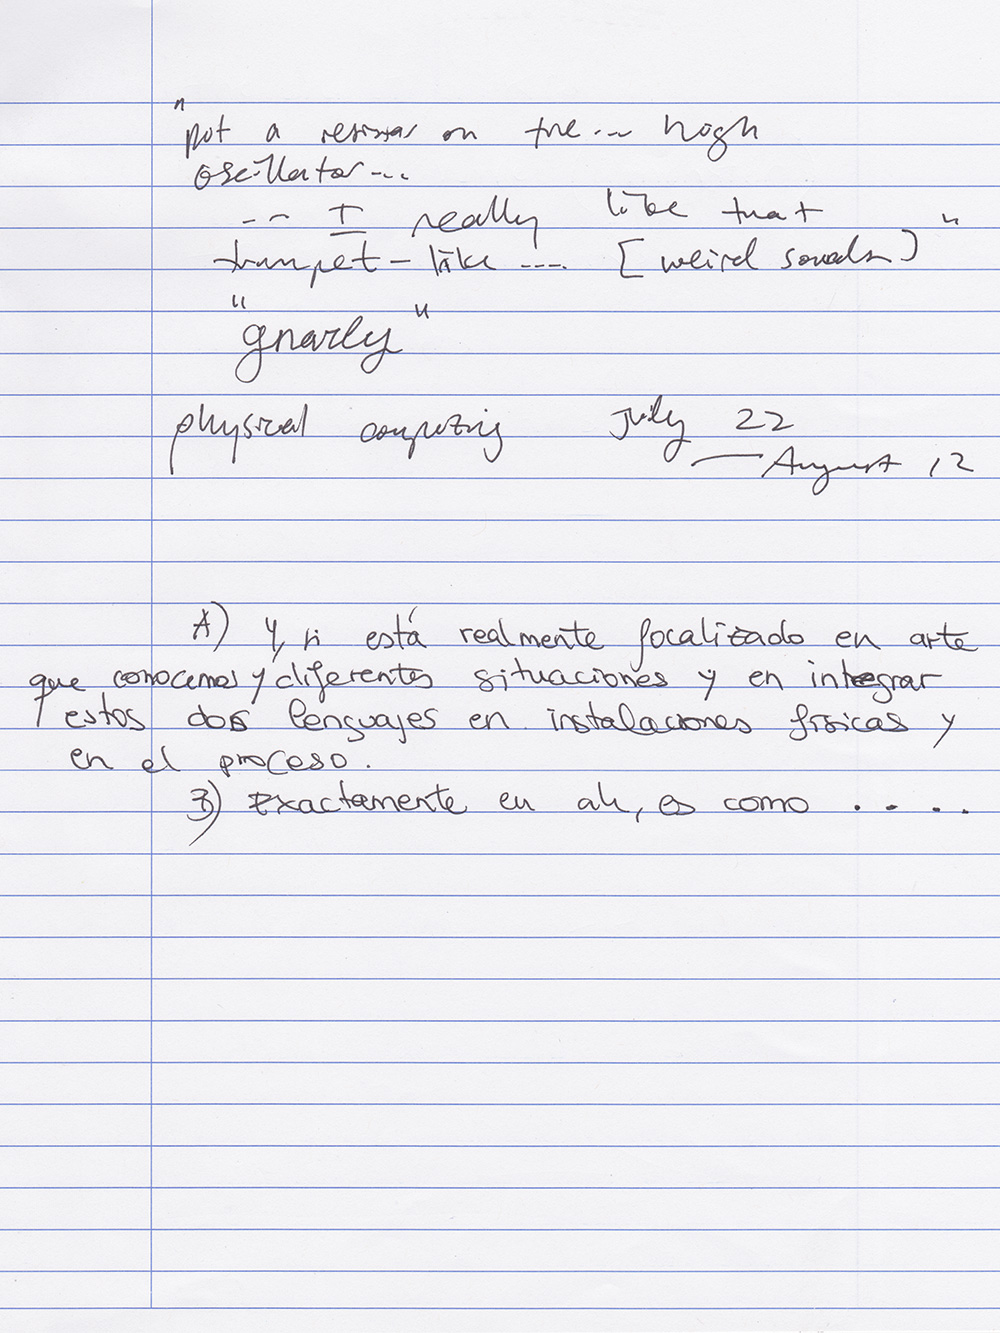 "put a resistor on the... high
oscillator...
... I really like that
trumpet-like .... [weird sounds] "
"gnarly"
physical computing July 22
— August 12
A) Y, si está realmente focalizado en arte
que conocemos y diferentes situaciones y en integrar
estos dos lenguajes en instalaciones físicas y
en el proceso.
B) Exactamente en ah, es como ....